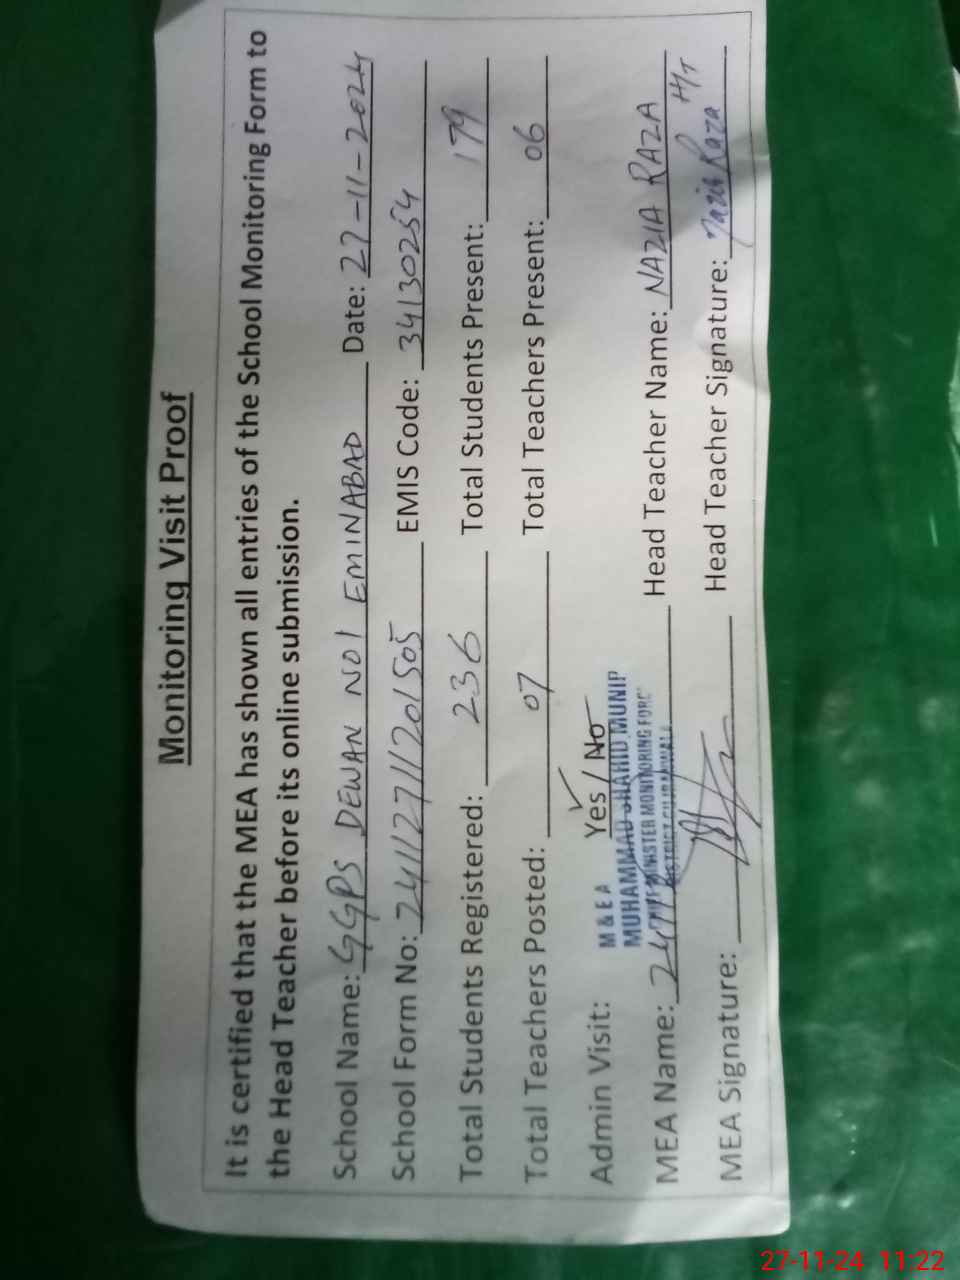 Monitoring Visit Proof
It is certified that the MEA has shown all entries of the School Monitoring Form to
the Head Teacher before its online submission.
School Name: GGPS DEWAN NO1 EMINABAD Date: 27-11-2024
School Form No: 241112711201505 EMIS Code: 34130254
Total Students Registered: 236 Total Students Present: 179
Total Teachers Posted: 07 Total Teachers Present: 06
Admin Visit: Yes / No
M & E A
MUHAMMAD SHAHID MUNIR
CHIEF MINISTER MONITORING FORCE
DISTRICT GUJRANWALA
MEA Name: Head Teacher Name: NAZIA RAZA
MEA Signature: Head Teacher Signature: Nazia Raza H/T
27-11-24 11:22